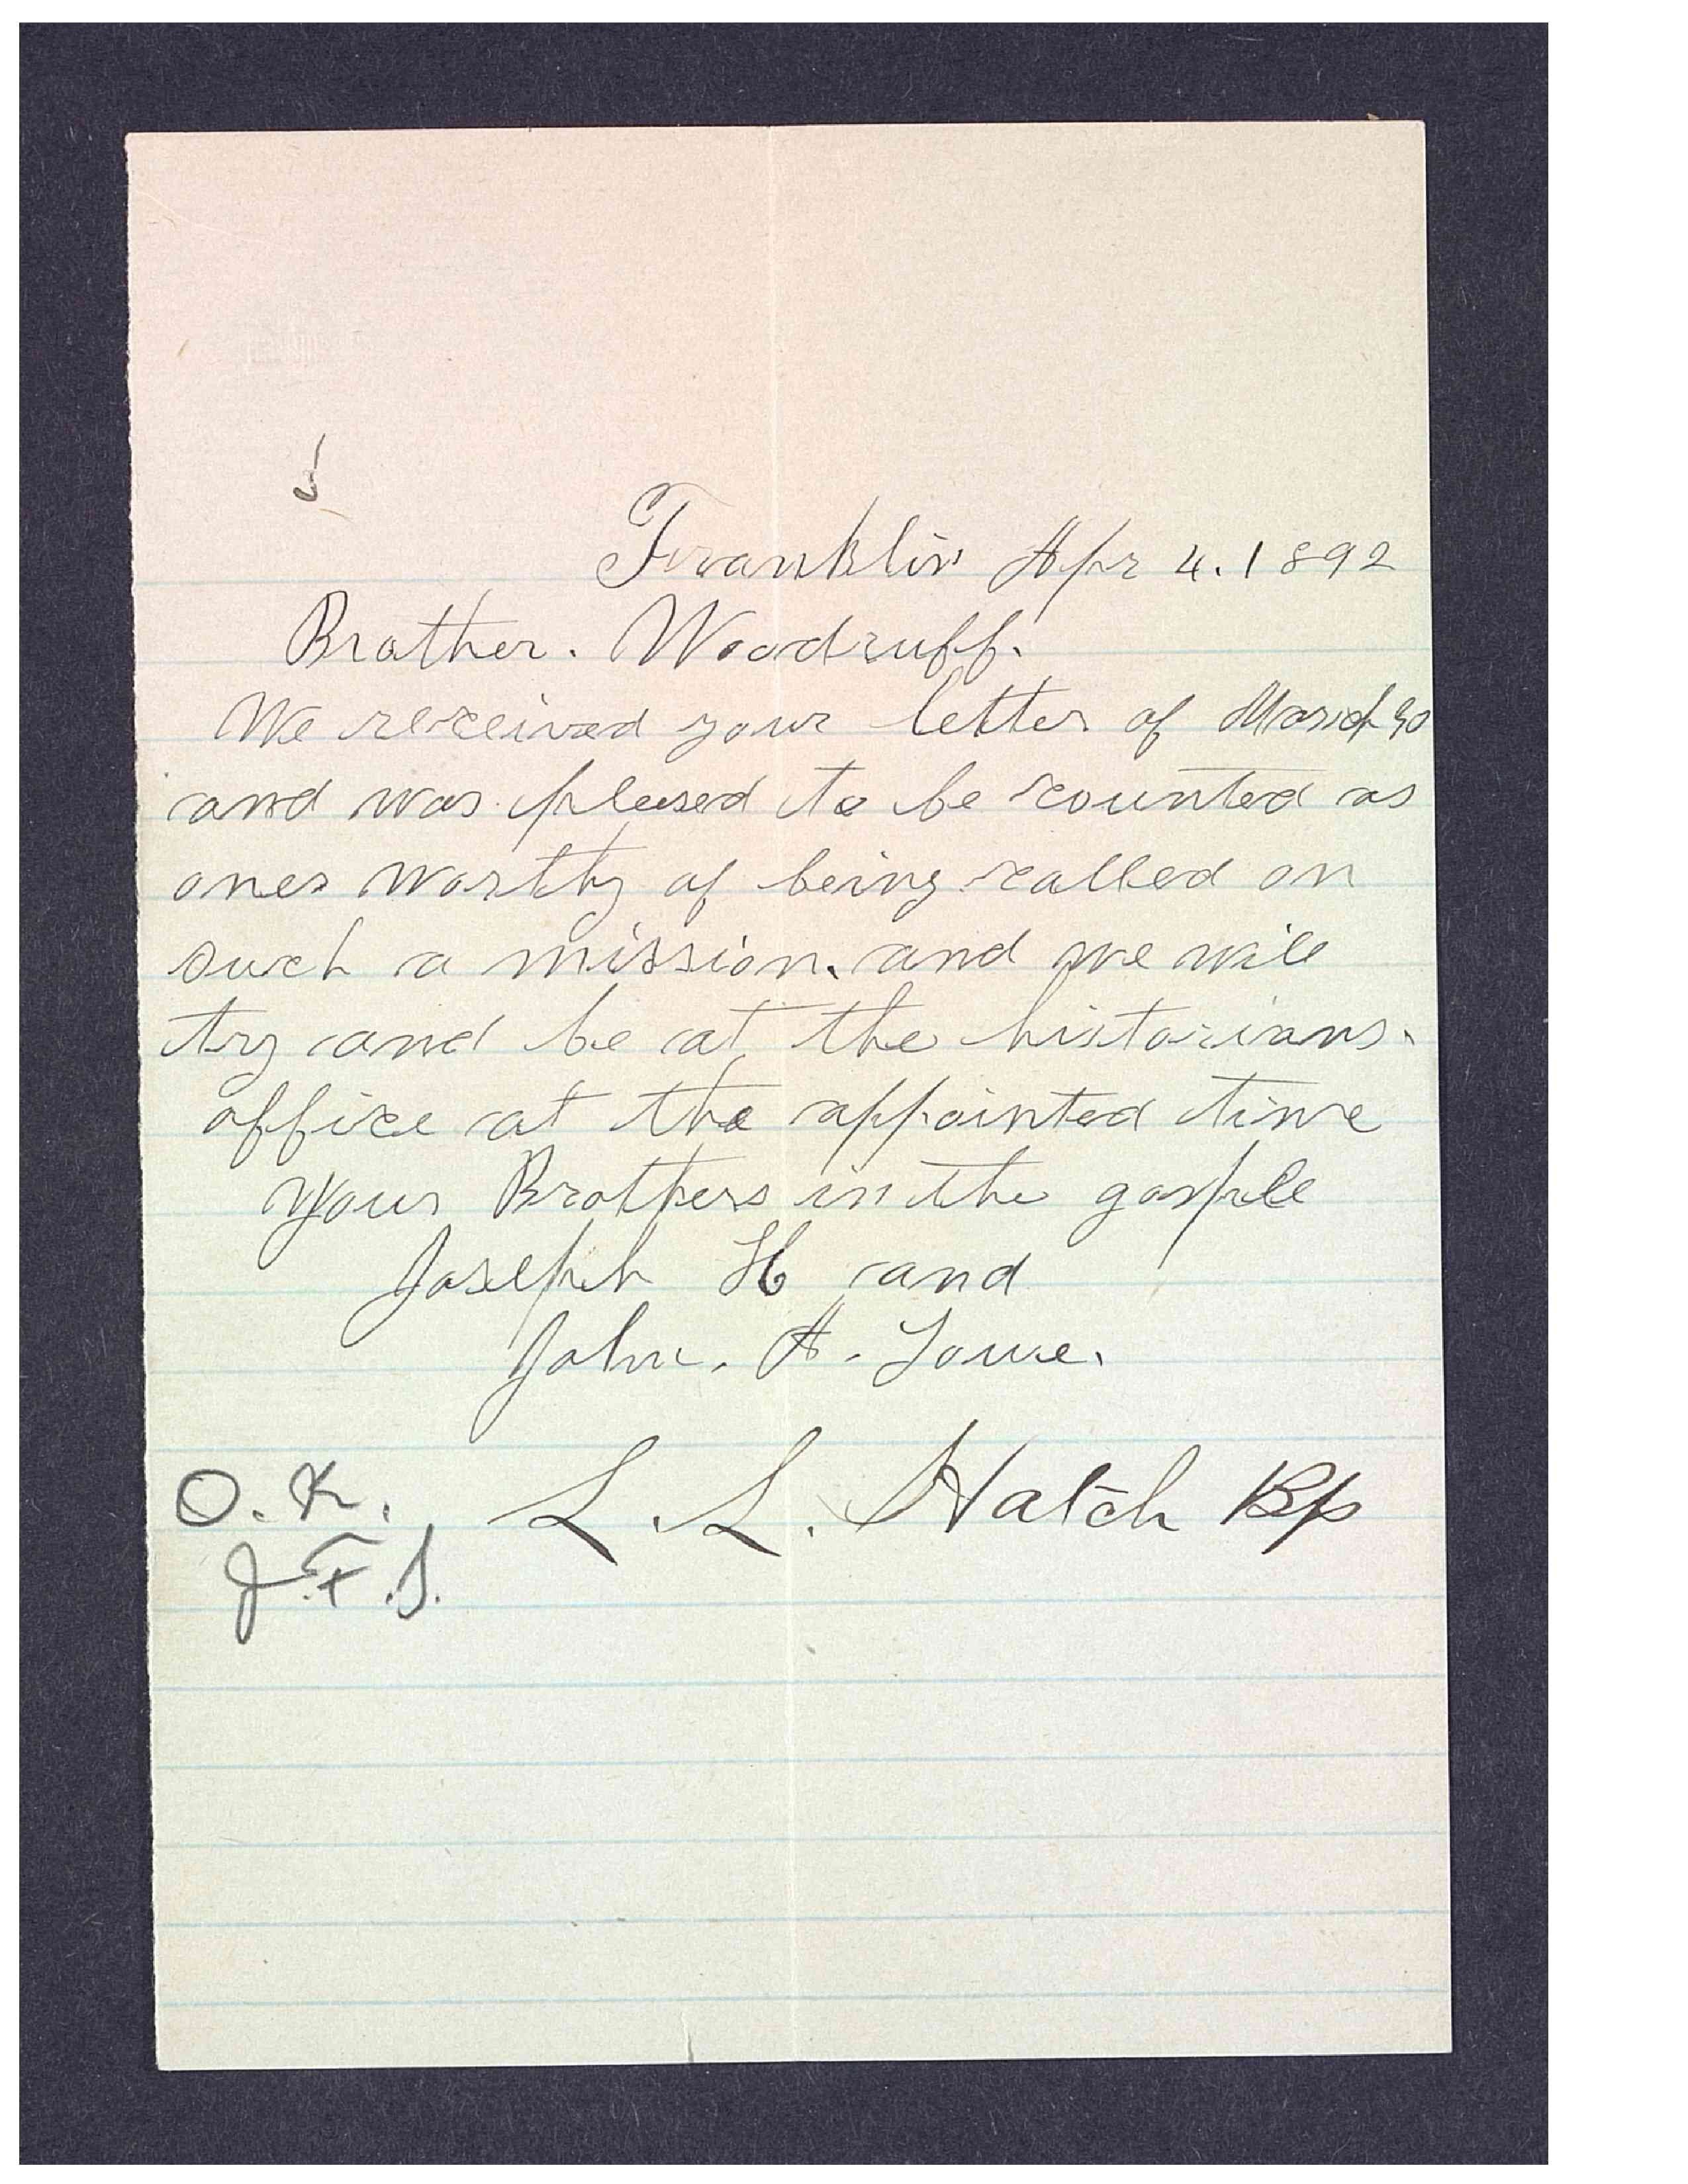 Franklin Apr 4. 1892
Brother. Woodruff.
We received your letter of March 30
and was pleased to be counted as
ones worthy of being called on
such a mission. and we will
try and be at the historians.
office at the appointed time
Your Brothers in the gosple
Joseph H and
John. A. Lowe.
O. K. L. L. Hatch Bp
J. F. S.